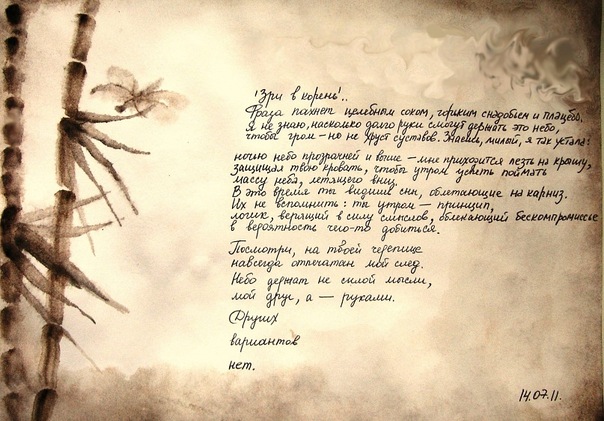 'Зри в корень'..
Фраза пахнет целебным соком, горьким снадобьем и плацебо.
Я не знаю, насколько долго руки смогут держать это небо,
чтобы гром – но не хруст суставов. Знаешь, милый, я так устала:
ночью небо прозрачней и выше – мне приходится лезть на крышу,
защищая твою кровать, чтобы утром успеть поймать
массу неба, летящего вниз.
В это время ты видишь сны, облетающие на карниз.
Их не вспомнить: ты утром – принцип,
логик, верящий в силу смыслов, облекающий бескомпромиссье
в вероятность чего-то добиться.
Посмотри, на твоей черепице
навсегда отпечатан мой след.
Небо держат не силой мысли,
мой друг, а — руками.
Других
вариантов
нет.
14.07.11.